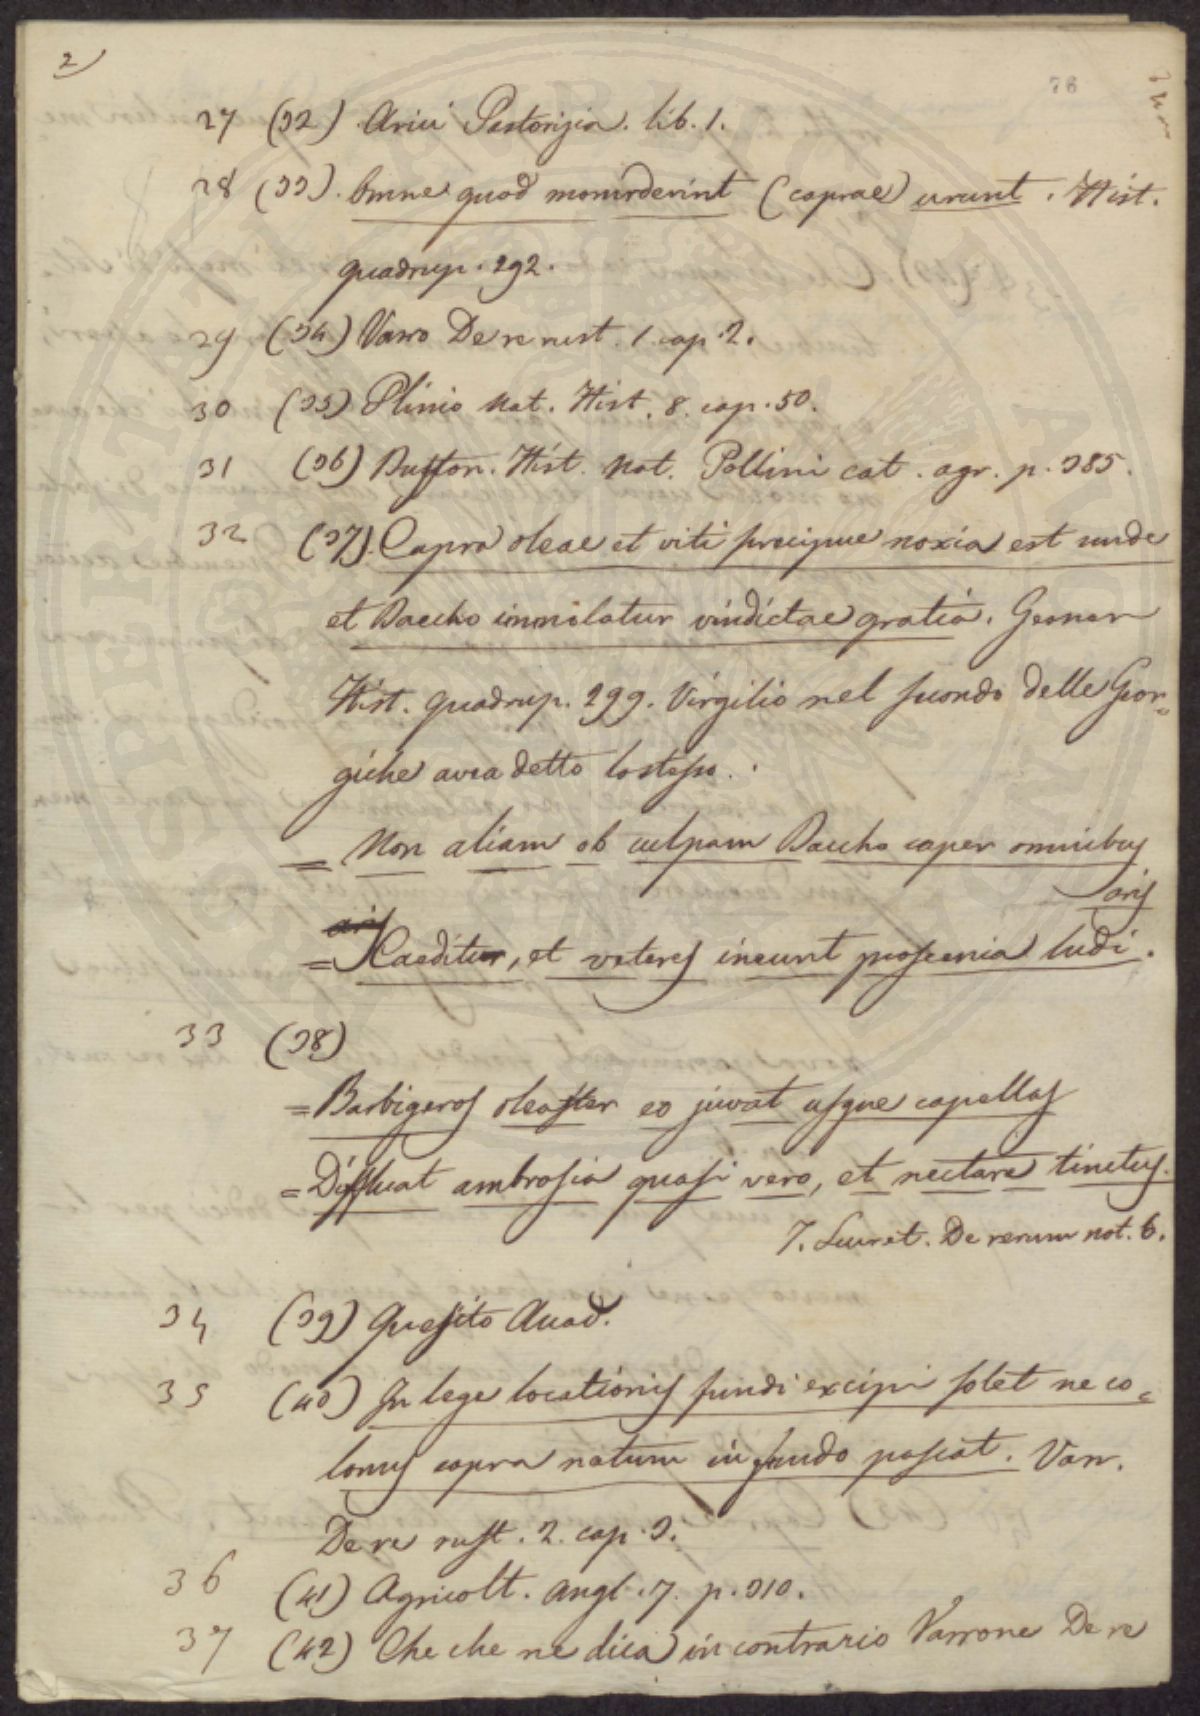 2
76
27 (32) Arici Pastorizia. lib. 1.
28 (33). Omne quod momorderint (caprae) urunt. Hist.
quadrup. 292.
29 (34) Varro De re rust. 1. cap. 2.
30 (35) Plinio Nat. Hist. 8. cap. 50.
31 (36) Buffon. Hist. Nat. Pollini cat. agr. p. 385.
32 (37). Capra oleae et viti precipue noxia est unde
et Baccho immolatur vindictae gratia. Gesner
Hist. quadrup. 299. Virgilio nel secondo delle Geor=
giche avea detto lo stesso.
= Non aliam ob culpam Baccho caper omnibus
aris
= Caeditur, et veteres ineunt proscenia ludi.
33 (38)
= Barbigeras oleaster eo juvat usque capellas
= Diffluat ambrosia quasi vero, et nectare tinctus.
T. Lucret. De rerum nat. 6.
34 (39) Quesito Accad.
35 (40) In lege locationis fundi excipi solet ne co=
lonus capra natum in fundo pascat. Varr.
De re rust. 2. cap. 3.
36 (41) Agricolt. angl. 7. p. 310.
37 (42) Che che ne dica in contrario Varrone De re